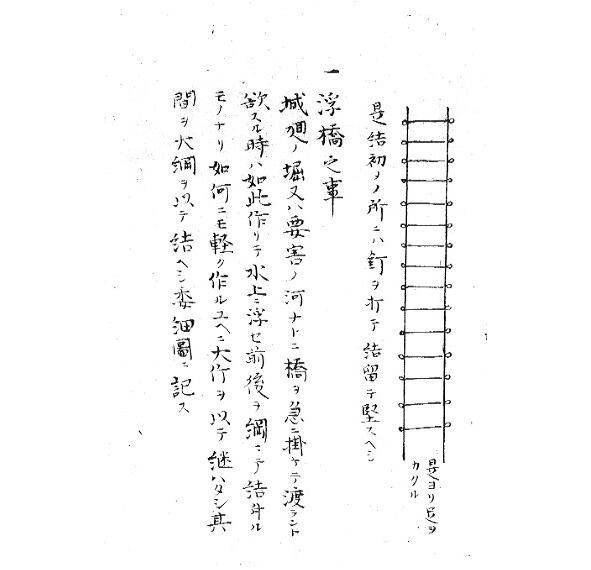 是ヨリ足ヲ
カクル
是結初メノ所ニハ釘ヲ打テ結留テ堅スヘシ
一浮橋之事
城廻ノ堀又ハ要害ノ河ナトニ橋ヲ急ニ掛ケテ渡ラント
欲スル時ハ如此作リテ水上ニ浮セ前後ヲ綱ニテ結斗ル
モノナリ如何ニモ軽ク作ルユヘニ大竹ヲ以テ継ハタシ其
間ヲ大綱ヲ以テ結ヘシ委細圖ニ記ス